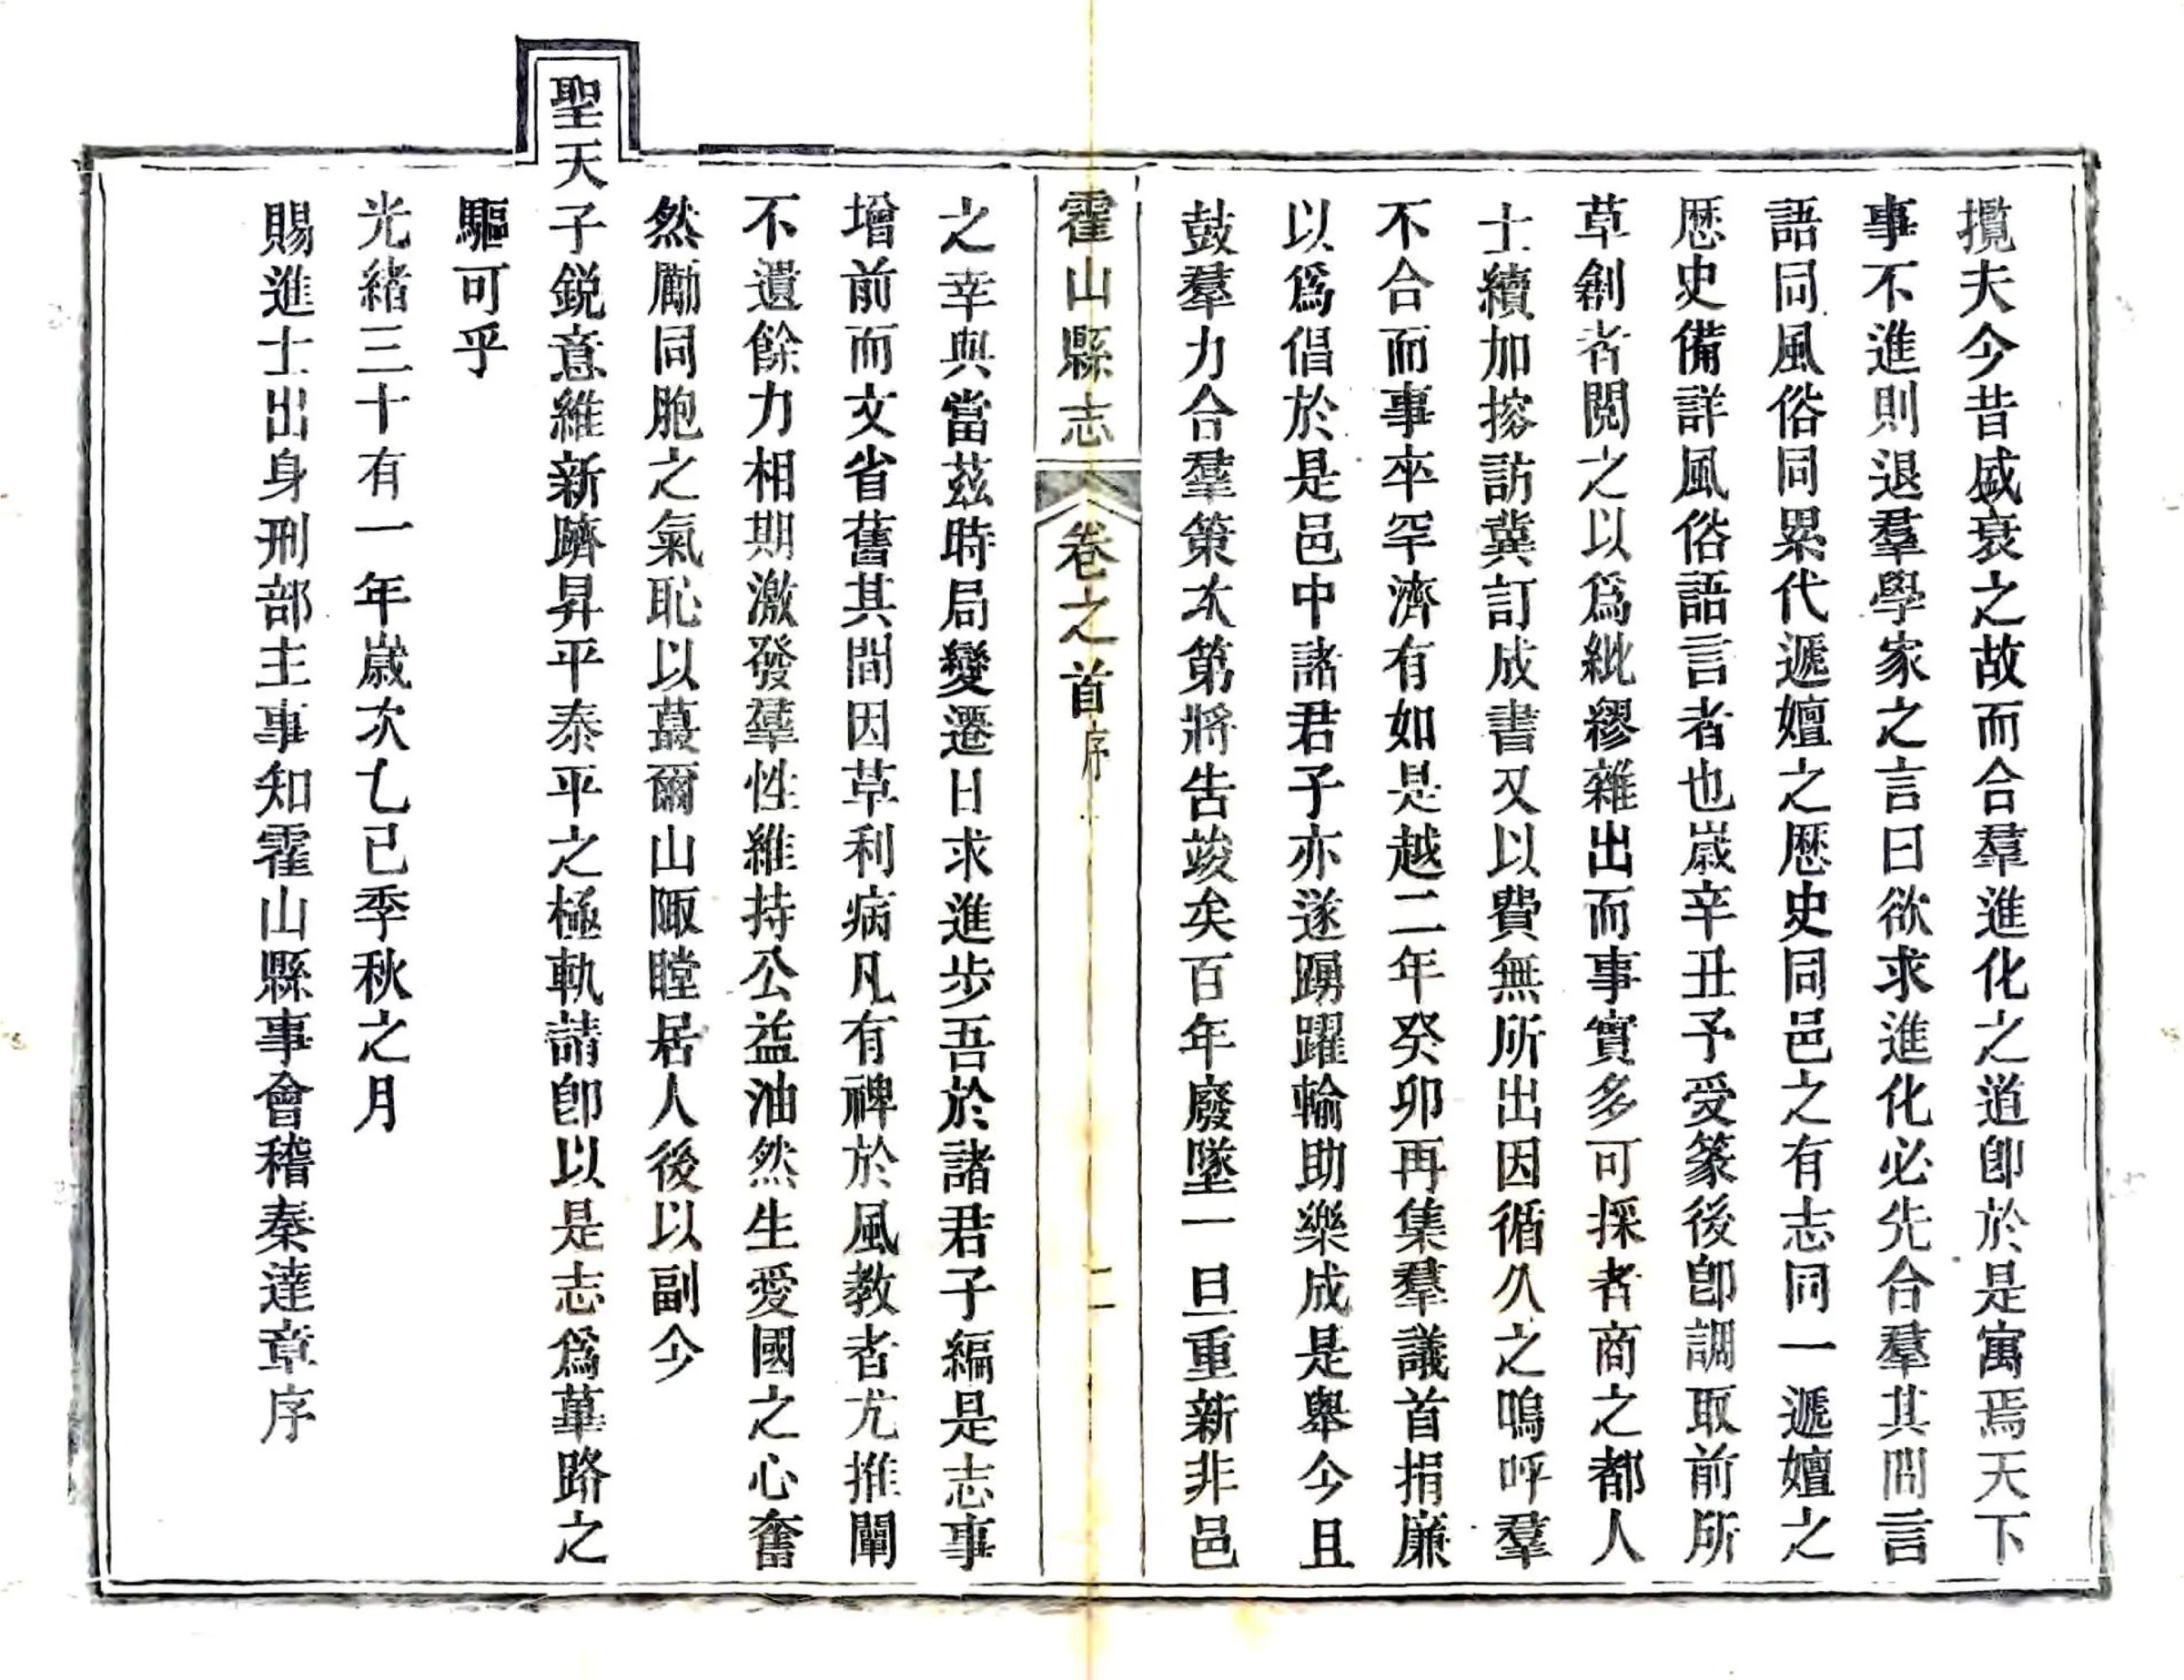 攬夫今昔盛衰之故而合羣進化之道卽於是寓焉天下
事不進則退羣學家之言曰欲求進化必先合羣其間言
語同風俗同累代遞嬗之歷史同邑之有志同一遞嬗之
歷史備詳風俗語言者也歲辛丑予受篆後卽調取前所
草創者閱之以爲紕繆雜出而事實多可採者商之都人
士續加搜訪冀訂成書又以費無所出因循久之嗚呼羣
不合而事卒罕濟有如是越二年癸卯再集羣議首捐廉
以爲倡於是邑中諸君子亦遂踴躍輸助樂成是舉今且
鼓羣力合羣策次第將告竣矣百年廢墜一旦重新非邑
霍山縣志 卷之首 序 二
之幸與當茲時局變遷日求進步吾於諸君子編是志事
增前而文省舊其間因革利病凡有裨於風教者尤推闡
不遺餘力相期激發羣性維持公益油然生愛國之心奮
然勵同胞之氣恥以蕞爾山陬瞠居人後以副今
聖天子銳意維新躋昇平泰平之極軌請卽以是志爲篳路之
驅可乎
光緒三十有一年歲次乙巳季秋之月
賜進士出身刑部主事知霍山縣事會稽秦達章序